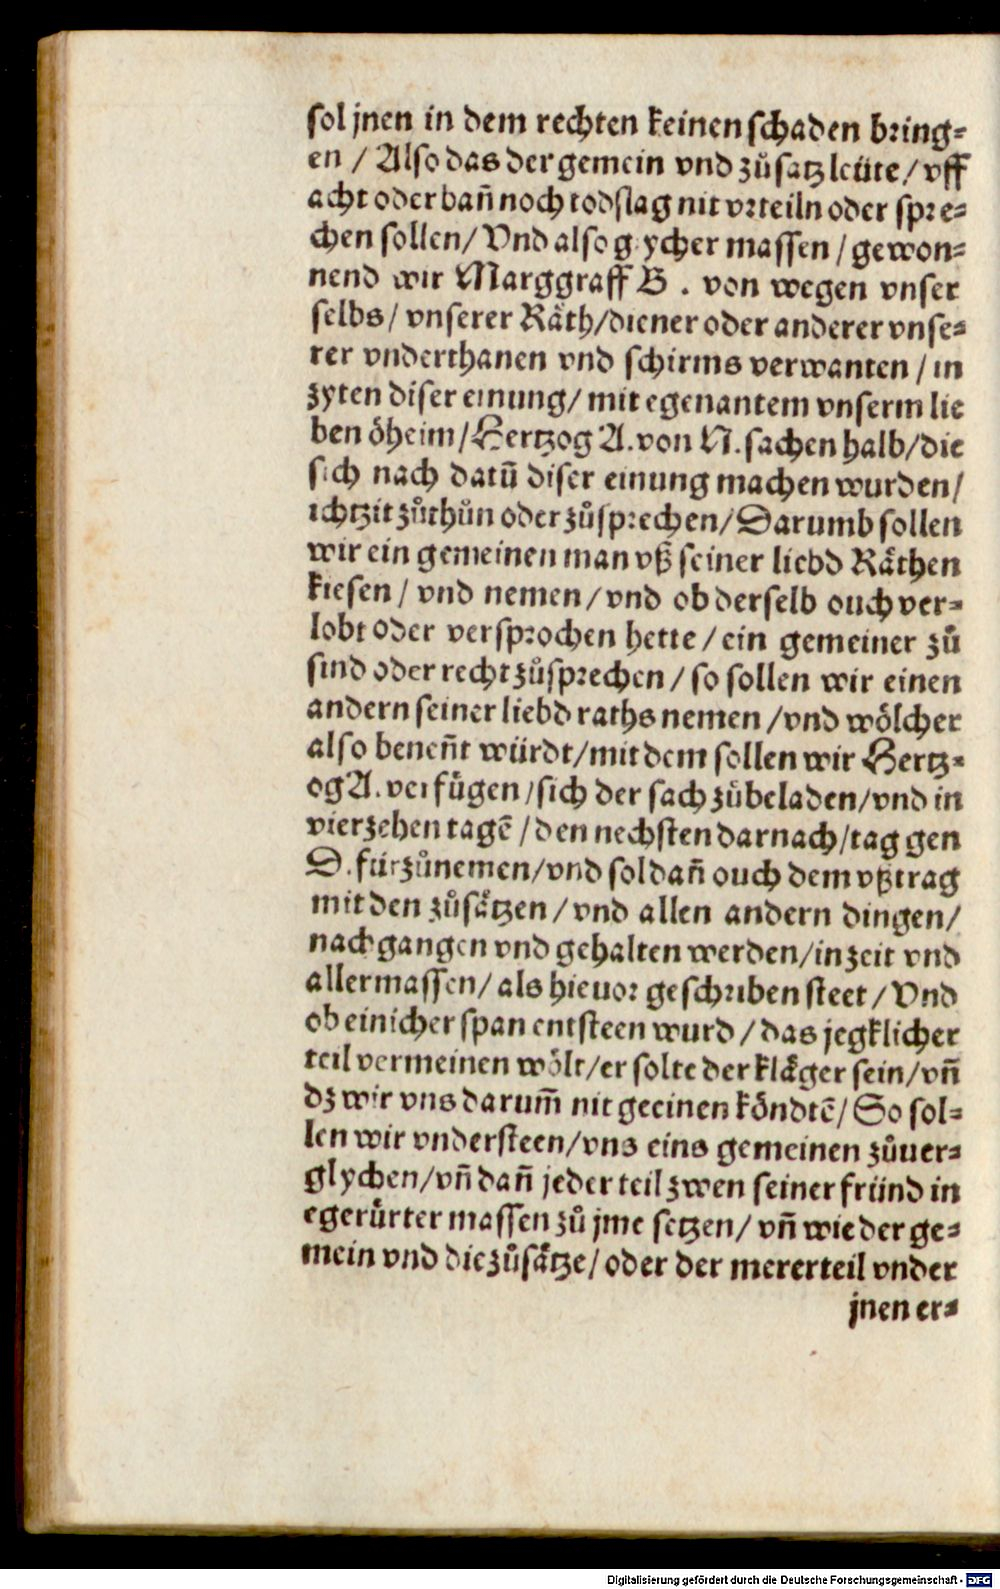 sol jnen in dem rechten keinen schaden bring⸗
en / Also das der gemein vnd zůsatz leüte / vff
acht oder bañ noch todslag nit vrteiln oder spre⸗
chen sollen / Vnd also g ycher massen / gewon⸗
nend wir Marggraff B . von wegen vnser
selbs / vnserer Räth / diener oder anderer vnse⸗
rer vnderthanen vnd schirms verwanten / in
zyten diser einung / mit egenantem vnserm lie
ben öheim / Hertzog A. von N. sachen halb / die
sich nach datū diser einung machen wurden /
ichtzit zůthůn oder zůsprechen / Darumb sollen
wir ein gemeinen man vß seiner liebd Räthen
kiesen / vnd nemen / vnd ob derselb ouch ver⸗
lobt oder versprochen hette / ein gemeiner zů
sind oder recht zůsprechen / so sollen wir einen
andern seiner liebd raths nemen / vnd wölcher
also beneñt würdt / mit dem sollen wir Hertz⸗
og A. verfügen / sich der sach zůbeladen / vnd in
vierzehen tagē / den nechsten darnach / tag gen
D. fürzůnemen / vnd sol dañ ouch dem vßtrag
mit den zůsätzen / vnd allen andern dingen /
nachgangen vnd gehalten werden / in zeit vnd
allermassen / als hieuor geschriben steet / Vnd
ob einicher span entsteen wurd / das jegklicher
teil vermeinen wölt / er solte der kläger sein / vñ
dz wir vns darum̄ nit geeinen köndtē / So sol⸗
len wir vndersteen / vns eins gemeinen zůuer⸗
glychen / vñ dañ jeder teil zwen seiner fründ in
egerürter massen zů jme setzen / vñ wie der ge⸗
mein vnd die zůsätze / oder der mererteil vnder
jnen er⸗
Digitalisierung gefördert durch die Deutsche Forschungsgemeinschaft - DFG